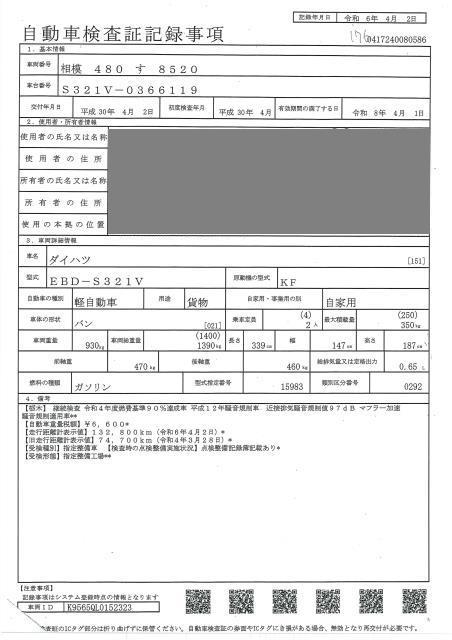 記録年月日 令和 6年 4月 2日
自動車検査証記録事項
176
0417240080586
1．基本情報
車両番号 相模 480 す 8520
車台番号 S321V-0366119
交付年月日 平成30年 4月 2日 初度検査年月 平成30年 4月 有効期間の満了する日 令和 8年 4月 1日
2．使用者・所有者情報
使用者の氏名又は名称
使用者の住所
所有者の氏名又は名称
所有者の住所
使用の本拠の位置
3．車両詳細情報
車名 ダイハツ [151]
型式 EBD-S321V 原動機の型式 KF
自動車の種別 軽自動車 用途 貨物 自家用・事業用の別 自家用
車体の形状 バン [021] 乗車定員 (4) 2人 最大積載量 (250) 350kg
車両重量 930kg 車両総重量 (1400) 1390kg 長さ 339cm 幅 147cm 高さ 187cm
前軸重 470kg 後軸重 460kg 総排気量又は定格出力 0.65 L
燃料の種類 ガソリン 型式指定番号 15983 類別区分番号 0292
4．備考
【栃木】 継続検査 令和4年度燃費基準90％達成車 平成12年騒音規制車 近接排気騒音規制値97dB マフラー加速
騒音規制適用車**
【自動車重量税額】￥6,600*
【走行距離計表示値】132,800km（令和6年4月2日）*
【旧走行距離計表示値】74,700km（令和4年3月28日）*
【受検種別】指定整備車 【検査時の点検整備実施状況】点検整備記録簿記載あり*
【受検形態】指定整備工場**
【注意事項】
記録事項はシステム登録時点の情報となります
車両ID K9565QL0152323
査証のICタグ部分は折り曲げずに保管ください。自動車検査証の券面やICタグにき損がある場合、無効となり再交付が必要です。